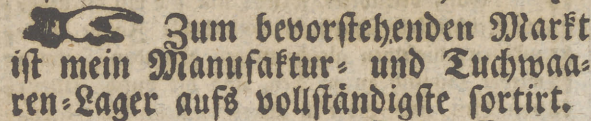 ☛ Zum bevorſtehenden Markt
iſt mein Manufaktur- und Tuchwaa-
ren-Lager aufs vollſtändigſte ſortirt.